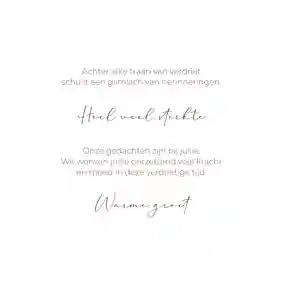 Achter elke traan van verdriet
schuilt een glimlach van herinneringen.
Heel veel sterkte
Onze gedachten zijn bij jullie.
We wensen jullie ontzettend veel kracht
en moed in deze verdrietige tijd.
Warme groet